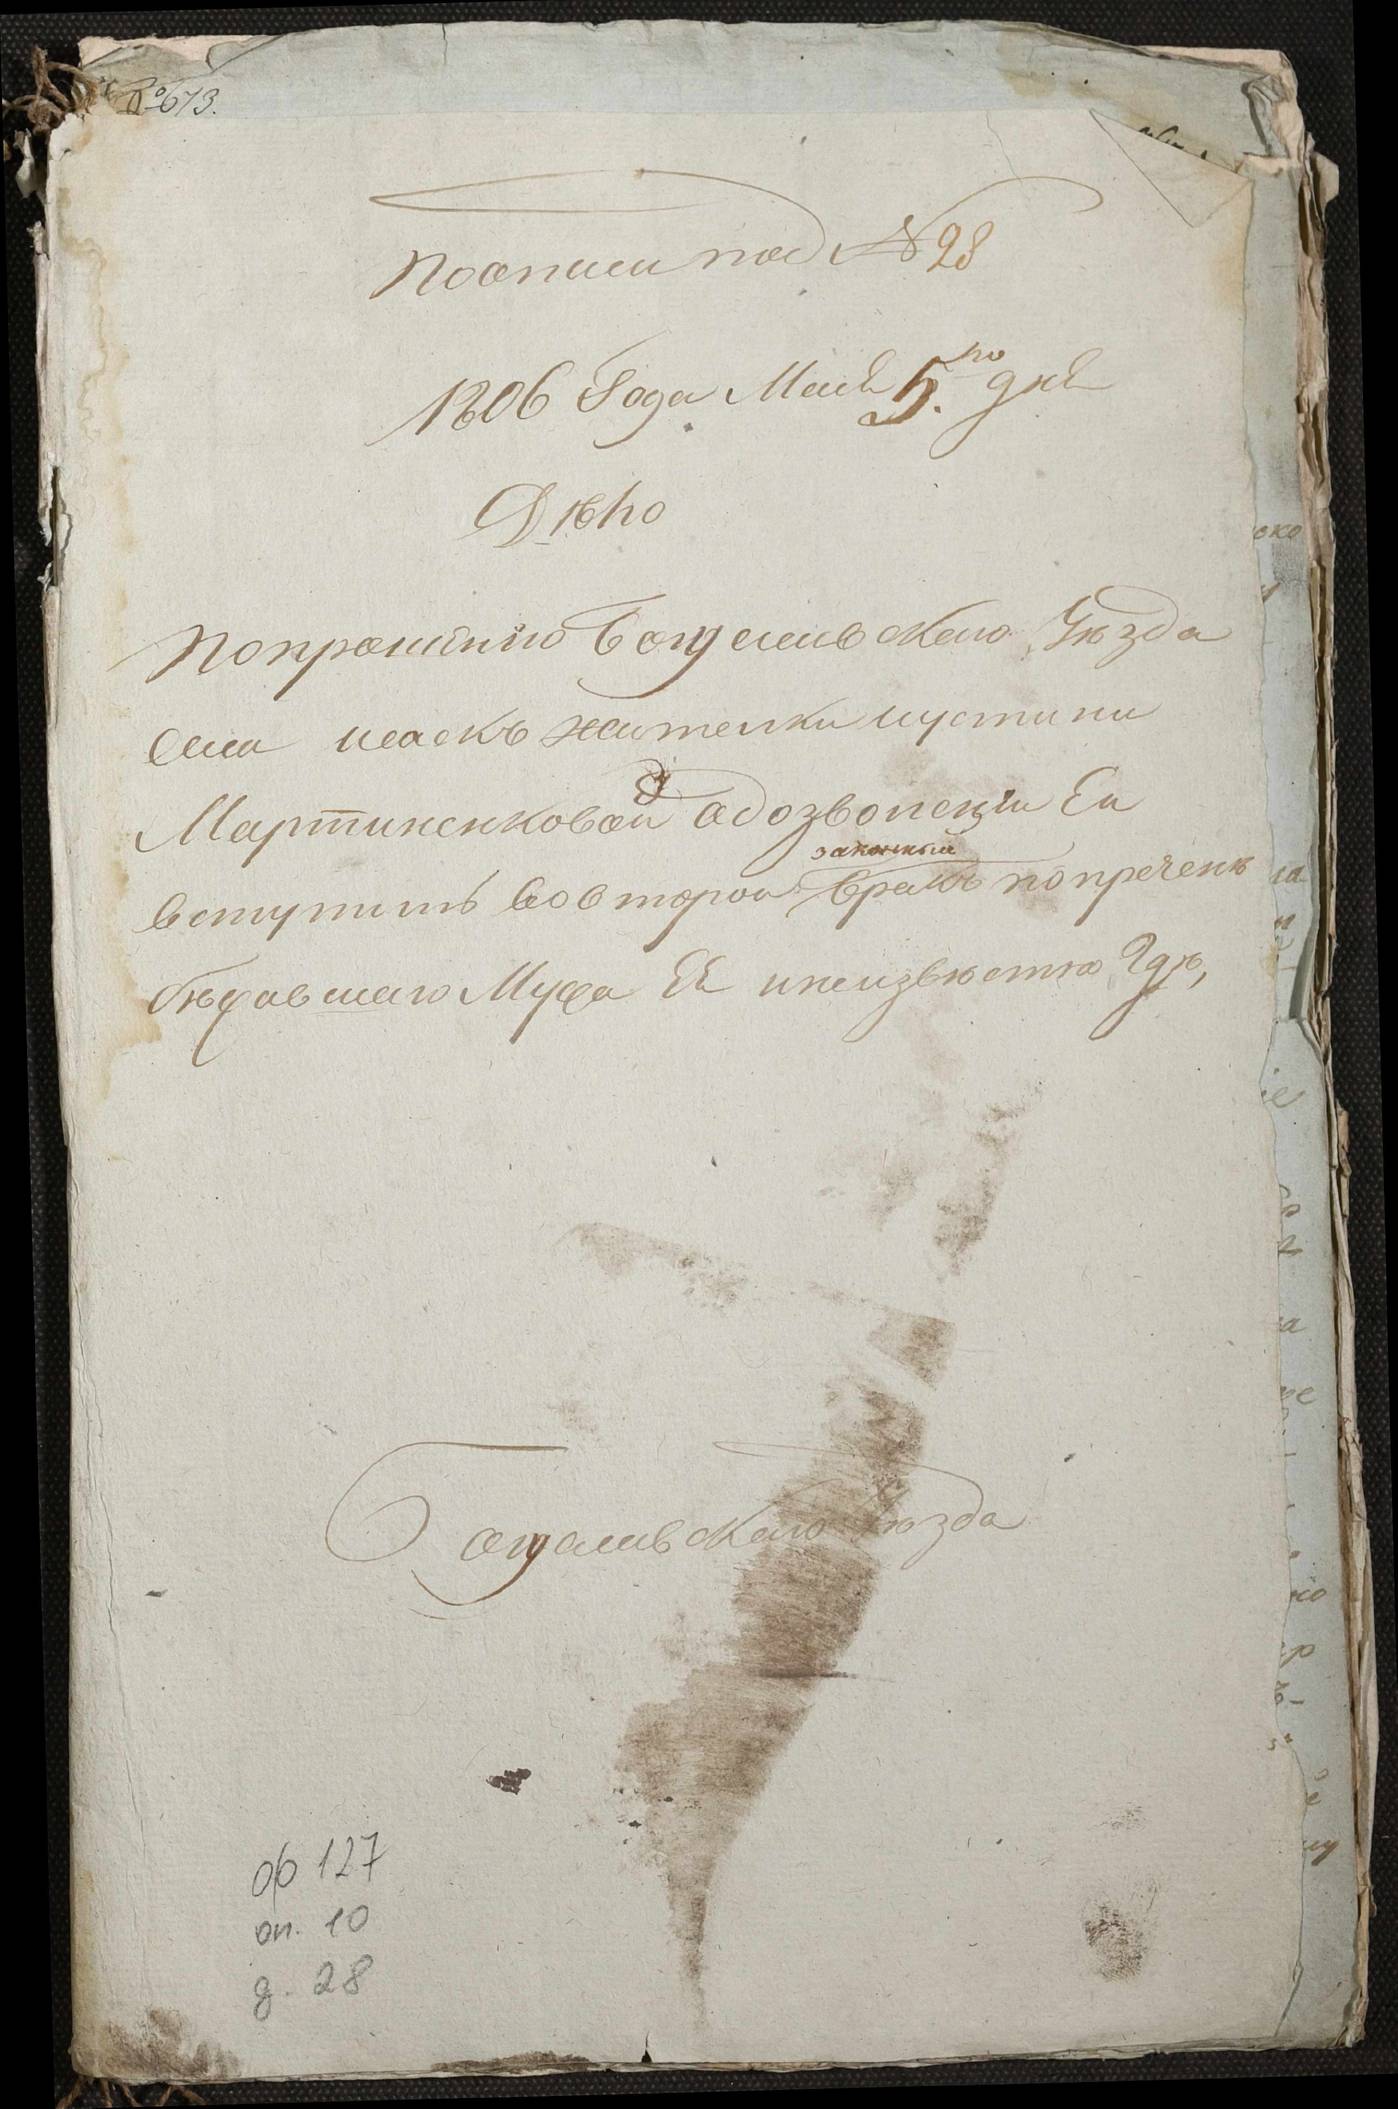 № 673.
По описи под № 28
1806 Года Маиѣ 5го днѣ
Дѣло
Попрошению Богуславского Уѣзда
Села жителки иустини
Мартиненковой одозволении Еи
вступить вовторои законный бракъ попречени
бѣжавшаго Мужа Еѣ инеизвѣстно Гдѣ,
Богуславского Уѣзда
ф 127
оп. 10
д. 28